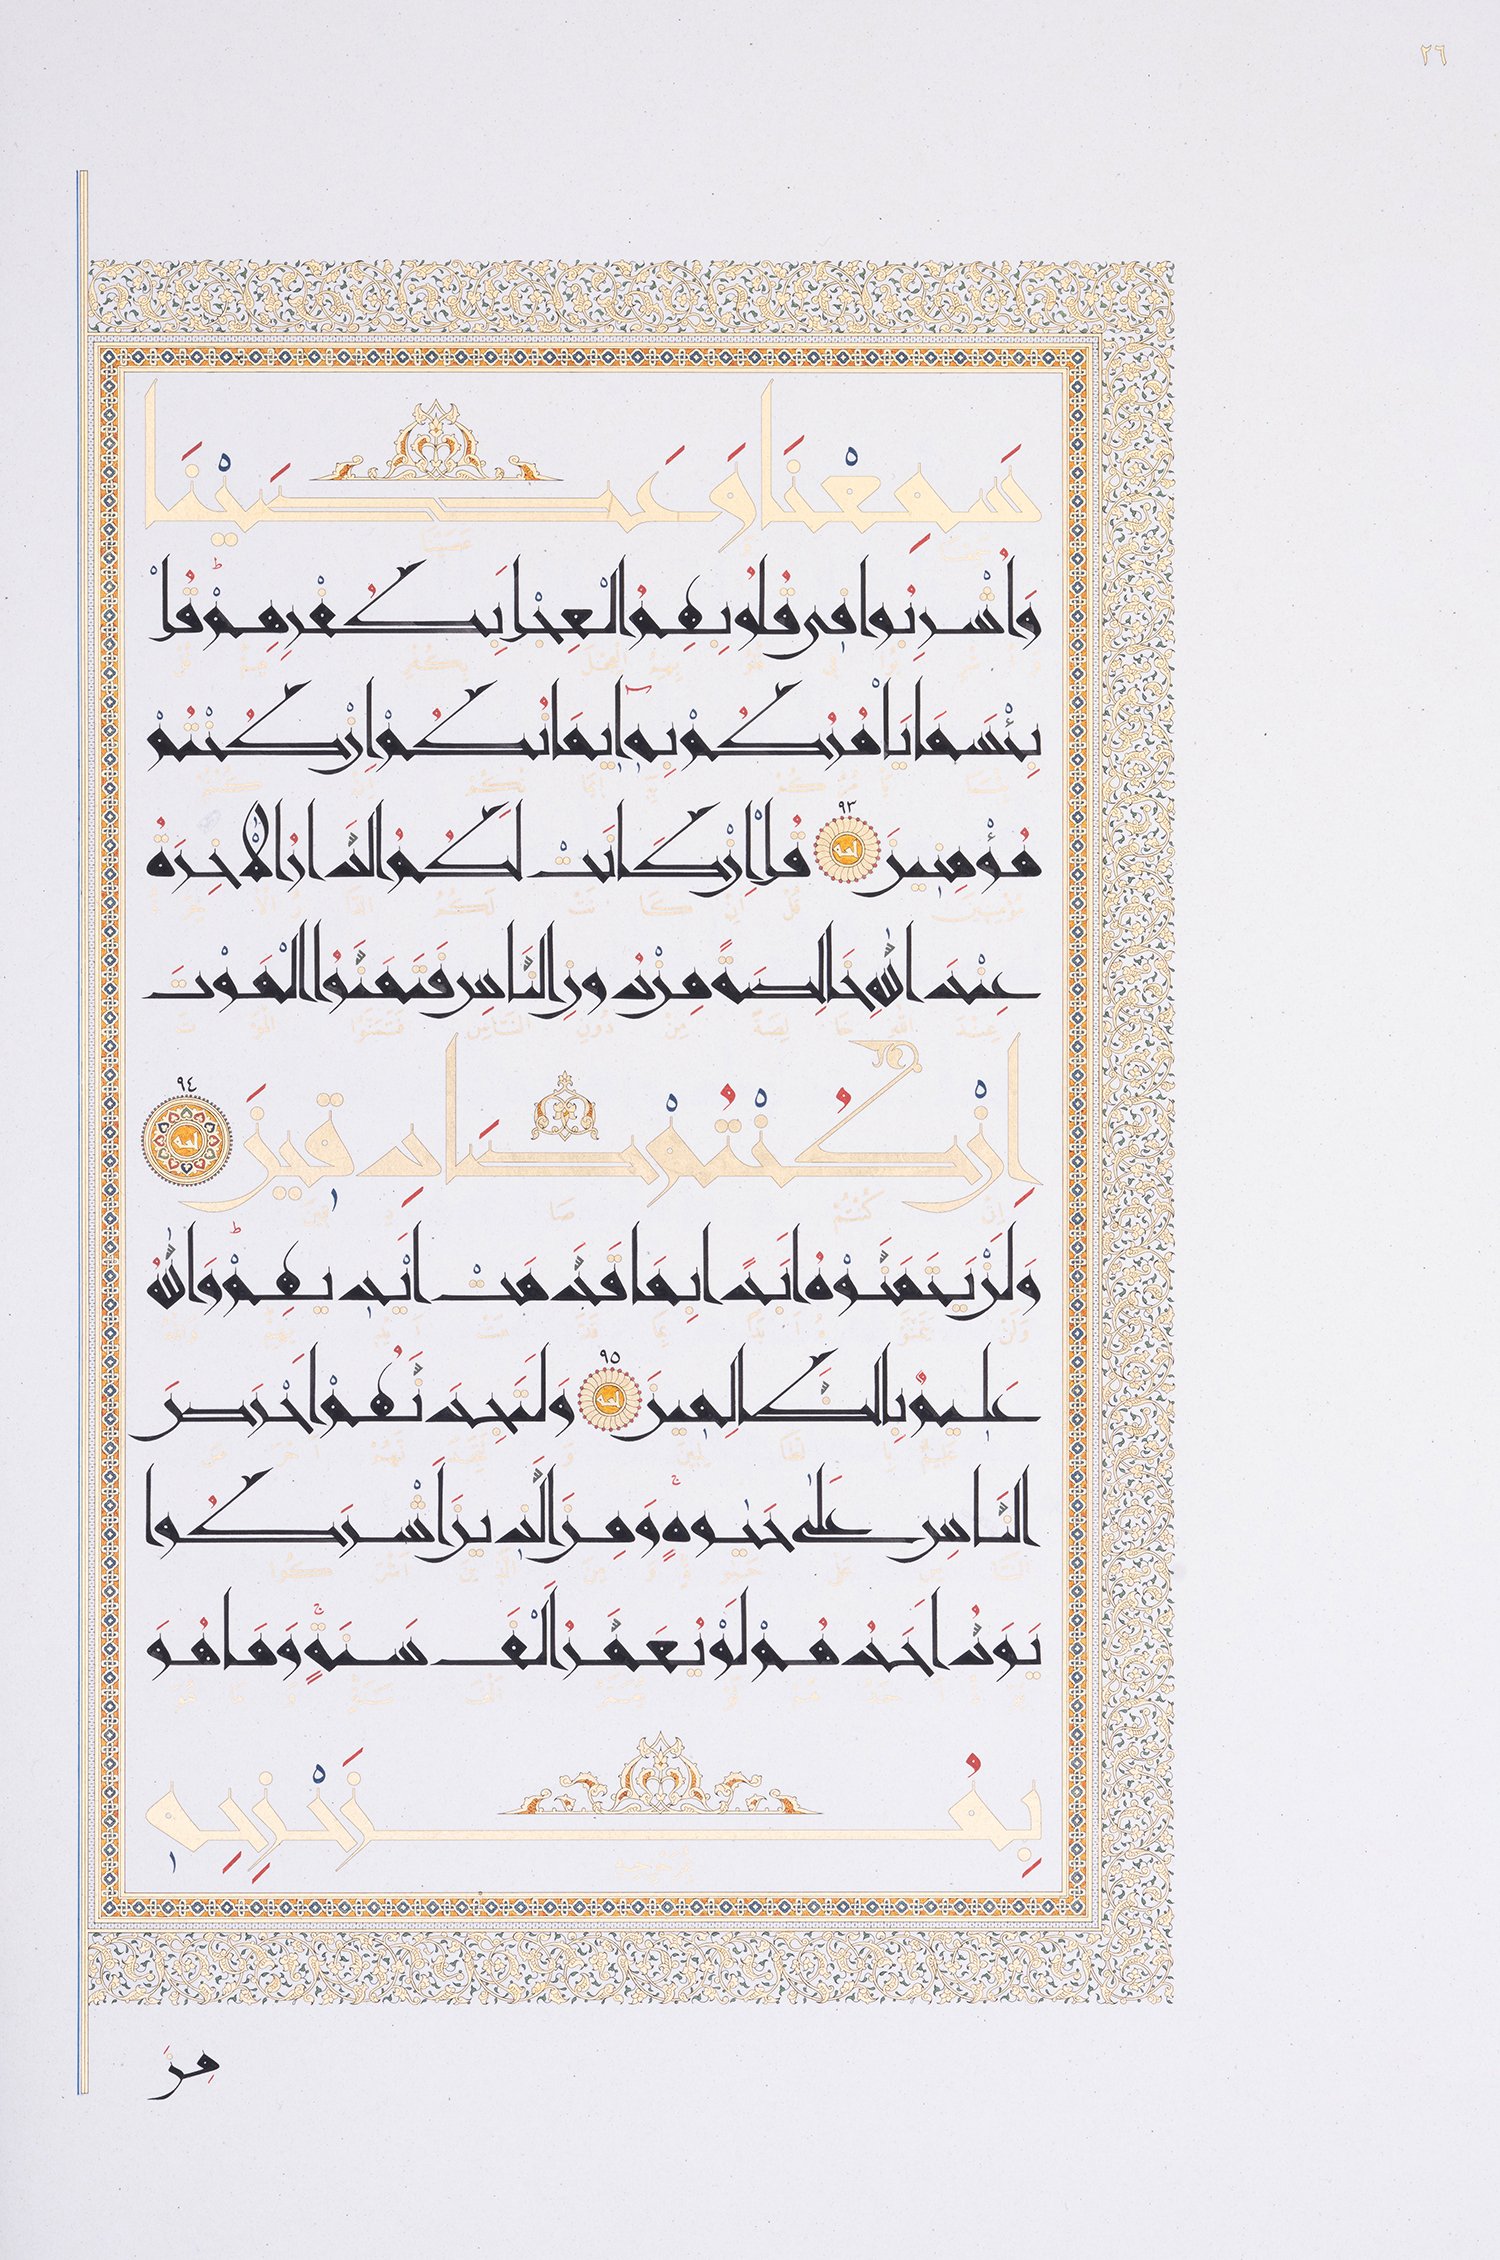 ٢٦
سَمِعْنَا وَعَصَيْنَا
وَأُشْرِبُوا فِي قُلُوبِهِمُ الْعِجْلَ بِكُفْرِهِمْ قُلْ
بِئْسَمَا يَأْمُرُكُمْ بِهِ إِيمَانُكُمْ إِنْ كُنْتُمْ
مُؤْمِنِينَ ٩٣ قُلْ إِنْ كَانَتْ لَكُمُ الدَّارُ الْآخِرَةُ
عِنْدَ اللَّهِ خَالِصَةً مِنْ دُونِ النَّاسِ فَتَمَنَّوُا الْمَوْتَ
إِنْ كُنْتُمْ صَادِقِينَ ٩٤
وَلَنْ يَتَمَنَّوْهُ أَبَدًا بِمَا قَدَّمَتْ أَيْدِيهِمْ وَاللَّهُ
عَلِيمٌ بِالظَّالِمِينَ ٩٥ وَلَتَجِدَنَّهُمْ أَحْرَصَ
النَّاسِ عَلَى حَيٰوةٍ وَمِنَ الَّذِينَ أَشْرَكُوا
يَوَدُّ أَحَدُهُمْ لَوْ يُعَمَّرُ أَلْفَ سَنَةٍ وَمَا هُوَ
بِمُزَحْزِحِهِ
مِنَ